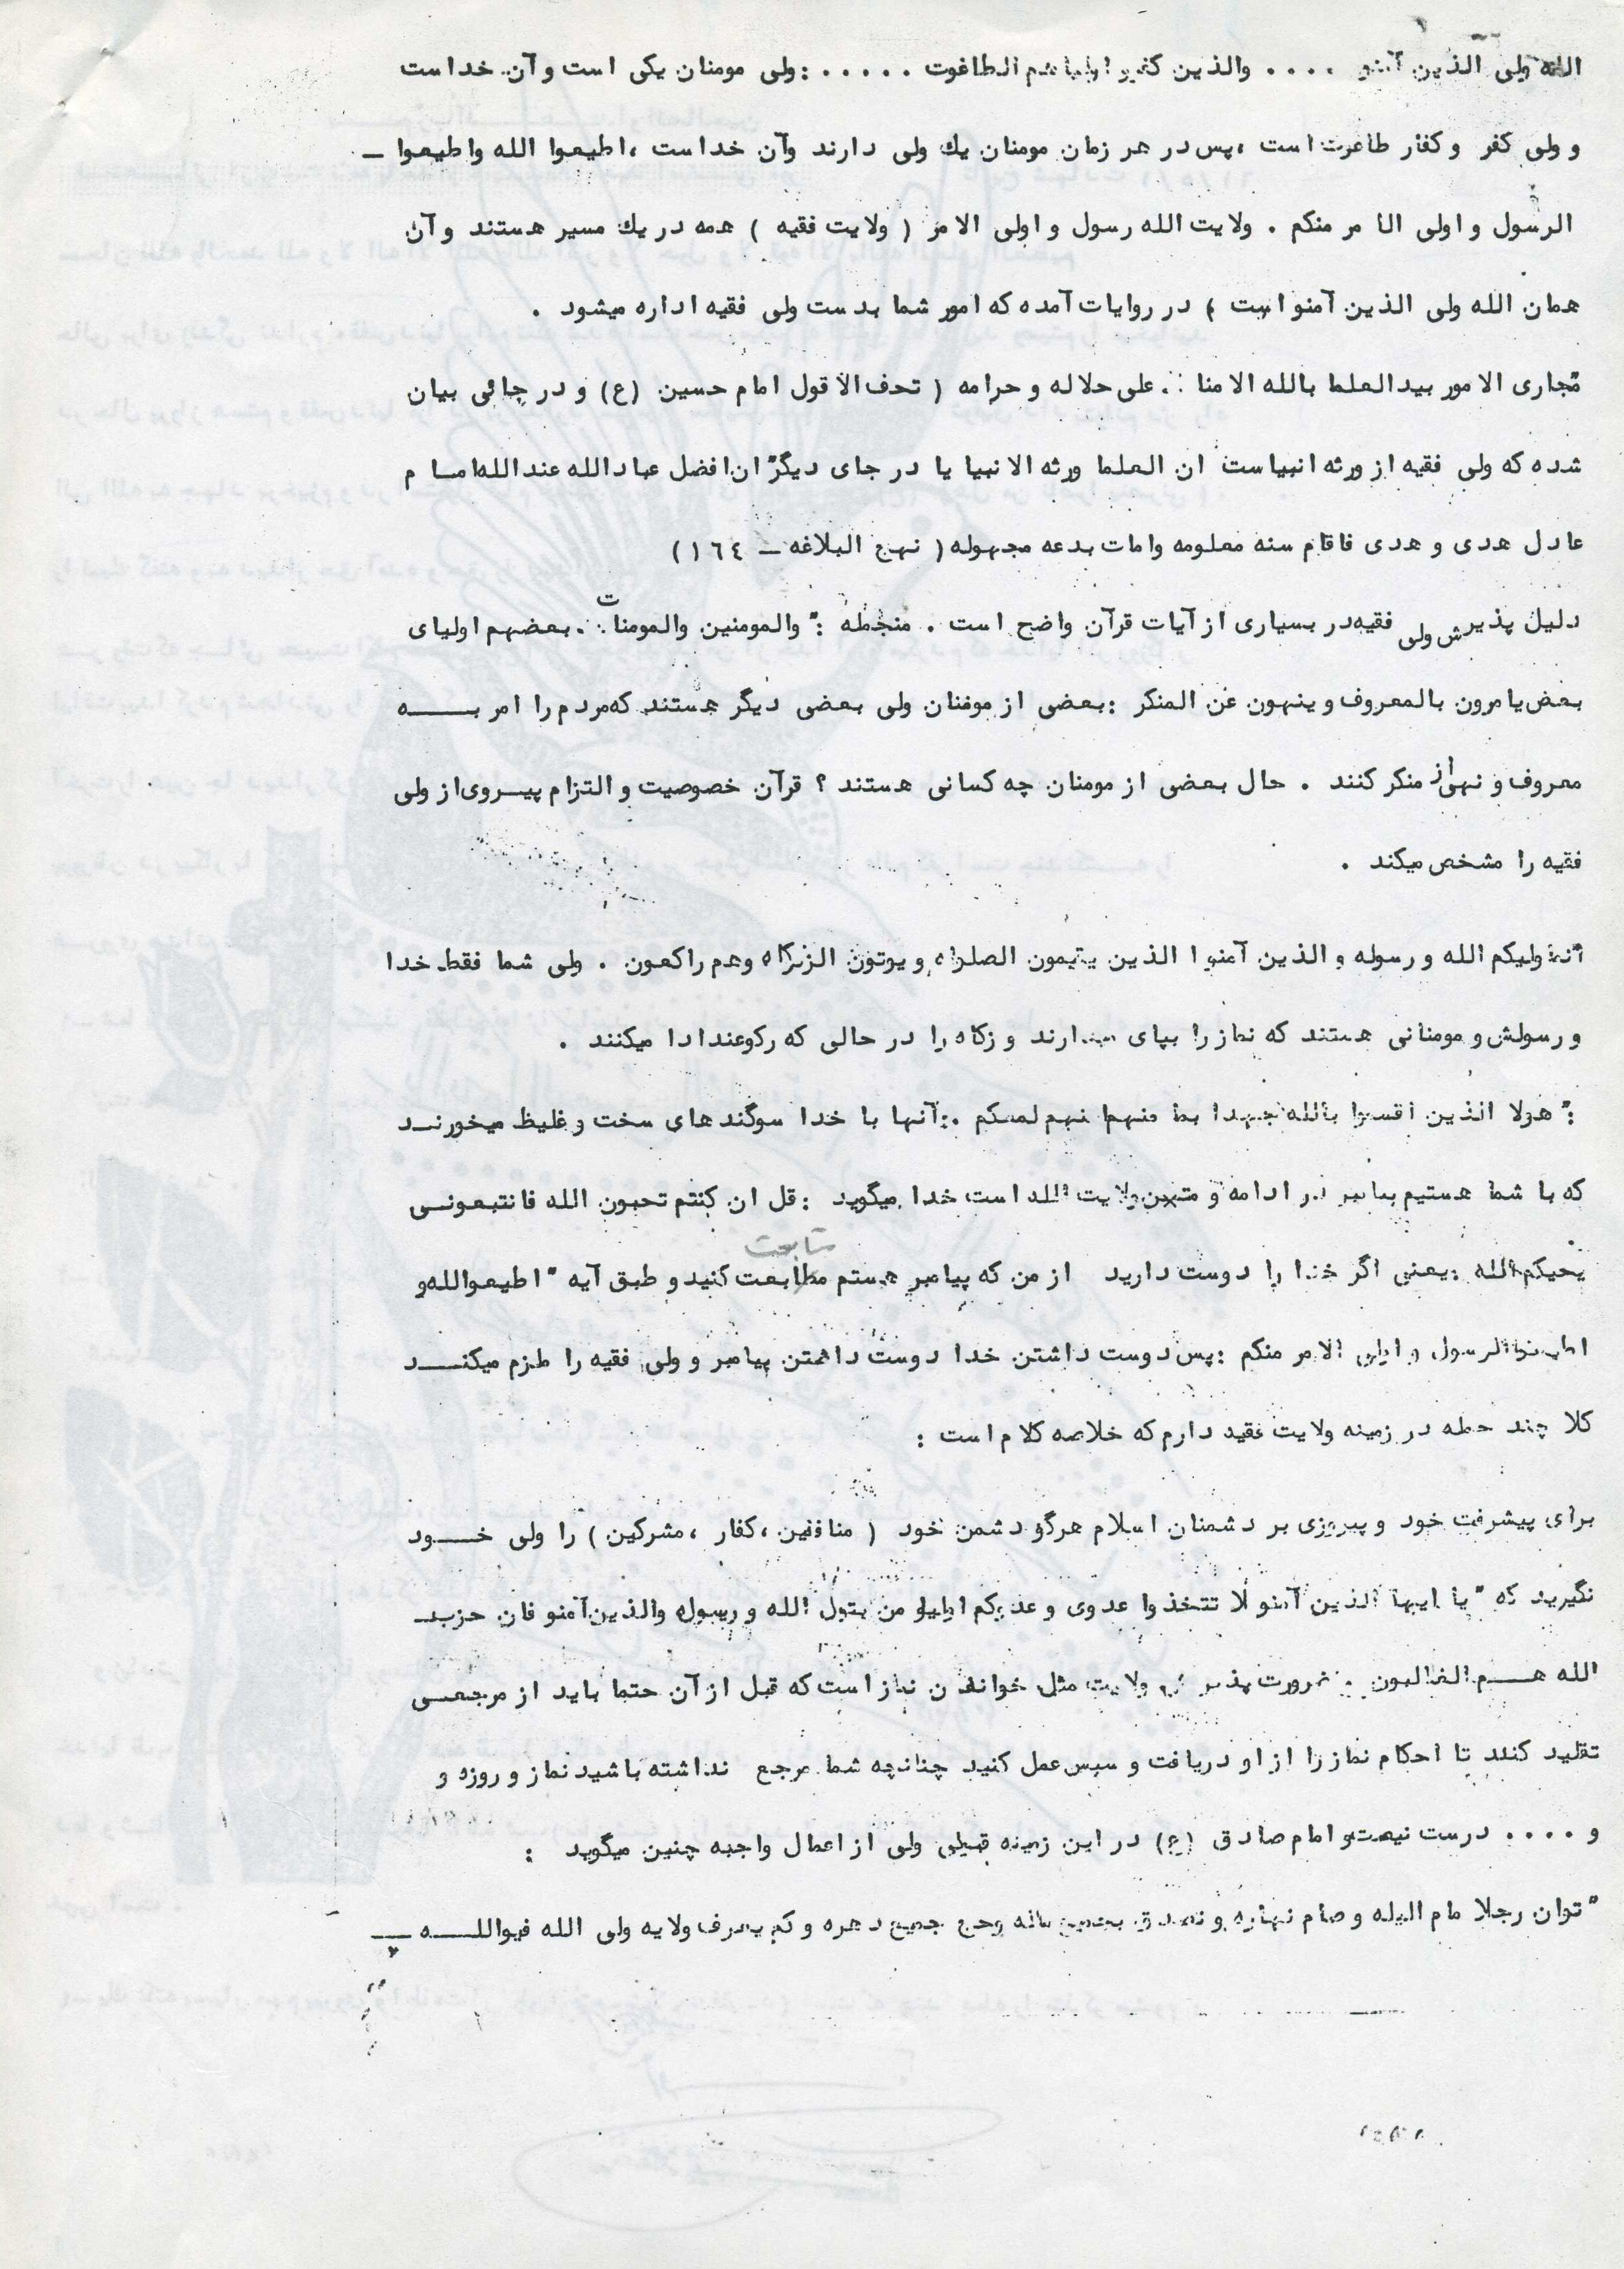 الله ولی الذین آمنو .... والذین کفرو اولیاهم الطاغوت ..... :ولی مومنان یکی است و آن خداست
و ولی کفر و کفار طاغوت است ،پس در هر زمان مومنان یك ولی دارند وآن خداست ،اطیعوا الله واطیعوا –
الرسول و اولی الا مر منکم . ولایت الله رسول و اولی الامر ( ولایت فقیه ) همه در یك مسیر هستند و آن
همان الله ولی الذین آمنو است ، در روایات آمده که امور شما بدست ولی فقیه اداره میشود .
"مجاری الامور بید العلما بالله الامنا . علی حلاله و حرامه ( تحف الاقول امام حسین (ع) و در جائی بیان
شده که ولی فقیه از ورثه انبیاست ان العلما ورثه الانبیا یا در جای دیگر" ان افضل عباد الله عند الله امام
عادل هدی و هدی فاقام سنه معلومه وامات بدعه مجهوله ( نهج البلاغه – ١٦٤ )
دلیل پذیرش ولی فقیه در بسیاری از آیات قرآن واضح است . منجمله :" والمومنین والمومنات . بعضهم اولیای
بعض یامرون بالمعروف و ینهون عن المنکر :بعضی از مومنان ولی بعضی دیگر هستند که مردم را امر به
معروف و نهی از منکر کنند . حال بعضی از مومنان چه کسانی هستند ؟ قرآن خصوصیت و التزام پیروی از ولی
فقیه را مشخص میکند .
"انما ولیکم الله و رسوله و الذین آمنوا الذین یقیمون الصلواه و یوتون الزکاه وهم راکعون . ولی شما فقط خدا
و رسولش و مومنانی هستند که نماز را بپای میدارند و زکاه را در حالی که رکوعند ادا میکنند .
:" هولا الذین اقسموا بالله جهدا انهم لمعکم .:آنها با خدا سوگند های سخت و غلیظ میخورند
که با شما هستیم پیامبر در ادامه و متن ولایت الله است خدا میگوید :قل ان کنتم تحبون الله فانتبعونی
یحیکم الله :یعنی اگر خدا را دوست دارید از من که پیامبر هستم متابعت کنید و طبق آیه " اطیعوالله و
اطیعوا الرسول و اولی الامر منکم :پس دوست داشتن خدا دوست داشتن پیامبر و ولی فقیه را ملزم میکند
کلا چند جمله در زمینه ولایت فقیه دارم که خلاصه کلام است :
برای پیشرفت خود و پیروزی بر دشمنان اسلام هرگز دشمن خود ( منافقین ،کفار ،مشرکین ) را ولی خود
نگیرید که " یا ایها الذین آمنو لا تتخذوا عدوی و عدوکم اولیاو من یتول الله و رسوله والذین آمنو فان حزب
الله هم الغالبون . ضرورت پذیرش ولایت مثل خواندن نماز است که قبل از آن حتما باید از مرجعی
تقلید کنند تا احکام نماز را از او دریافت و سپس عمل کنید چنانچه شما مرجع نداشته باشید نماز و روزه و
و .... درست نیست و امام صادق (ع) در این زمینه ولی از اعمال واجبه چنین میگوید :
" توان رجلا مام الیله و صام نهاره و تصدق بجمیع ماله وحج جمیع دهره و لم یعرف ولایه ولی الله فیوالله –